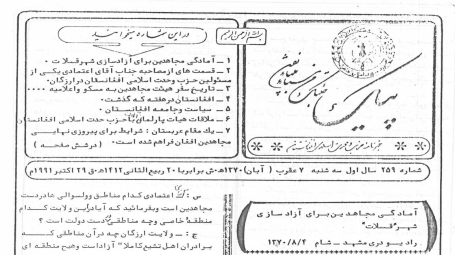 در این شماره میخوانید
۱ ــ آمادگی مجاهدین برای آزادسازی شهر قلات ۰
۲ ــ قسمت های ازمصاحبه جناب آقای اعتمادی یکی از
مسئولین حزب وحدت اسلامی افغانستان در ارزگان۰
۳ ــ تاریخ سفر هیئت مجاهدین به مسکو واعلامیه ۰۰۰۰
۴ ــ افغانستان در هفته که گذشت۰
۵ ــ سیاست وجامعه افغانستان ۰
۶ ــ ملاقات هیات پارلمانی با حزب وحدت اسلامی افغانستان
۷ ــ یک مقام عربستان : شرایط برای پیروزی نهایی
مجاهدین افغان فراهم شده است۰
( درشش صفحه )
بسم الله الرحمن الرحیم
شماره ۲۵۹ سال اول سه شنبه ۷ عقرب ( آبان) ۱۳۷۰هـ ش برابربا ۲۰ ربیع الثانی ۱۴۱۲هـ ق ۲۹ اکتبر ۱۹۹۱م
آمادگی مجاهدین برای آزاد سازی
شهر"قلات"
رادیو دری مشهد ــ شام ۱۳۷۰/۸/۴
س : اعتمادی کدام مناطق وولسوالی هادردست
مجاهدین است وبفرمائید که آیادراین ولایت کــدام
منطقه خاصی وچه مناطقی دست دولت است ؟
ج : ــ ولایت ارزگان چه درآن مناطقی کــــه
برادران اهل تشیع کاملا" آزاداست وهیچ منطقه ای